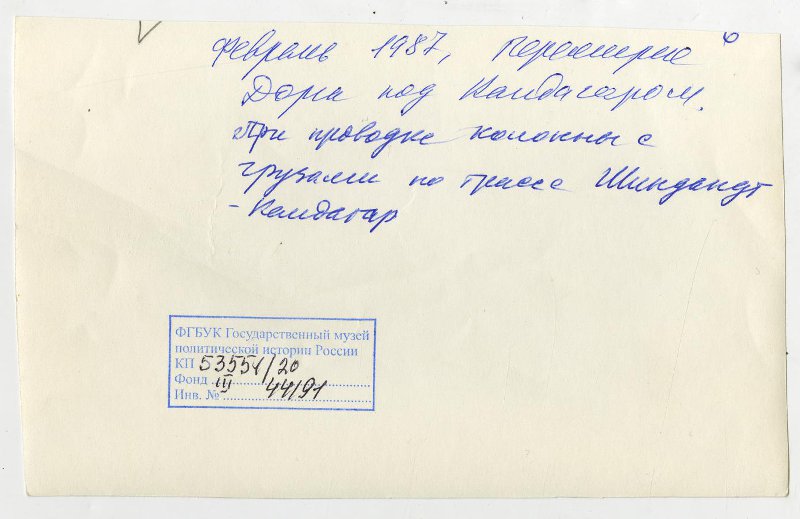 Февраль 1987, 6
Дори под Кандагаром.
При проводке колонны с
грузами по трассе Шиндандт
- Кандагар
ФГБУК Государственный музей
политической истории России
КП 53551/20
Фонд III
Инв. № 44191